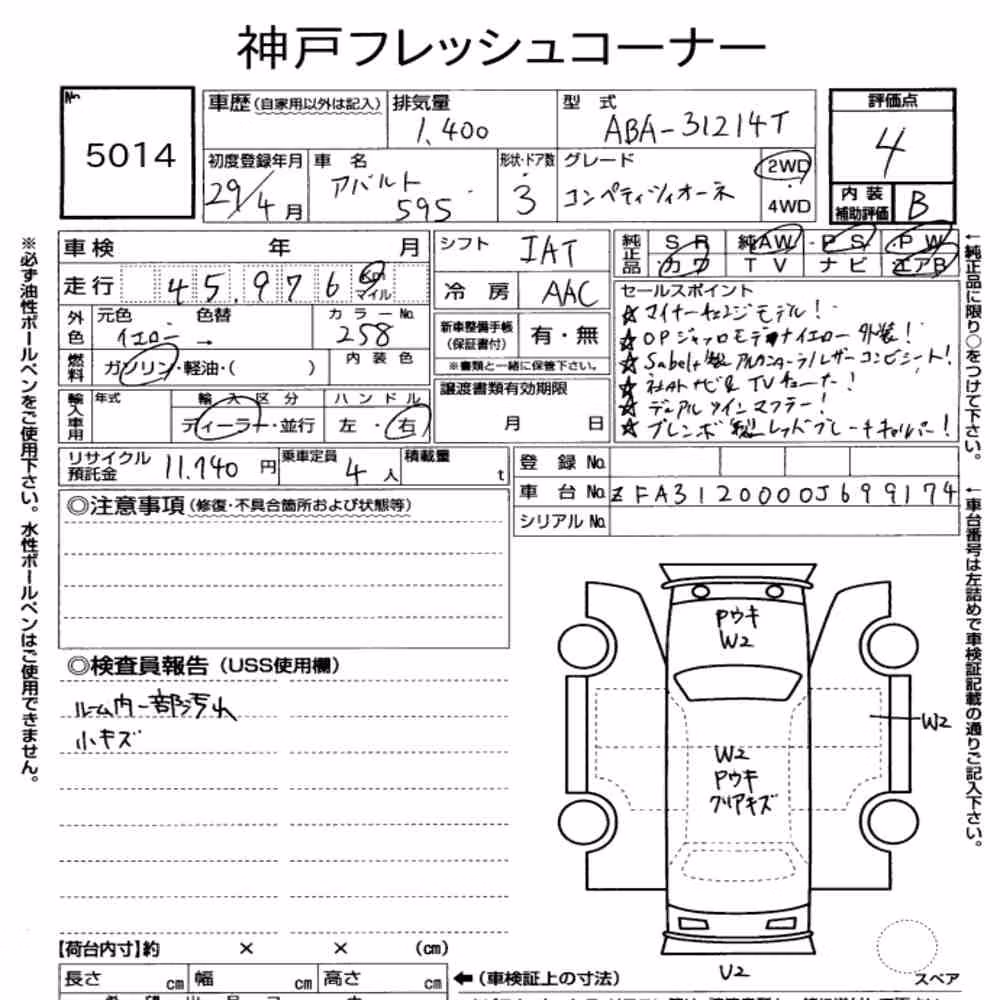 神戸フレッシュコーナー
No. 5014
車歴 (自家用以外は記入) 排気量 1,400 型式 ABA-31214T
評価点 4
初度登録年月 29/4月 車名 アバルト 595 形状・ドア数 3 グレード コンペティツィオーネ 2WD 4WD
内装補助評価 B
車検 年 月 シフト IAT 純正品 SR 純AW PS PW
カワ TV ナビ エアB
走行 45,976 km マイル 冷房 AAC
セールスポイント
☆ マイナーチェンジモデル!
☆ OPジャッロモデナイエロー外装!
☆ Sabelt製アルカンターラ/レザーコンビシート!
☆ 社外ナビ& TVチューナー!
☆ デュアルツインマフラー!
☆ ブレンボ製レッドブレーキキャリパー!
外色 元色 イエロー 色替 → カラーNo. 258
新車整備手帳 (保証書付) 有・無
※書類と一緒に保管下さい。
燃料 ガソリン・軽油・( ) 内装色
譲渡書類有効期限 月 日
輸入車用 年式 輸入区分 ディーラー・並行 ハンドル 左・右
リサイクル預託金 11,740 円 乗車定員 4人 積載量 t
登録No.
車台No. ZFA3120000J699174
シリアルNo.
◎注意事項 (修復・不具合箇所および状態等)
◎検査員報告 (USS使用欄)
ルーム内一部汚れ
小キズ
Pウキ
W2
W2
W2
Pウキ
クリアキズ
U2
スペア
【荷台内寸】約 × × (cm)
長さ cm 幅 cm 高さ cm ←(車検証上の寸法)
※必ず油性ボールペンをご使用下さい。水性ボールペンはご使用できません。
←純正品に限り○をつけて下さい。
←車台番号は左詰めで車検証記載の通りご記入下さい。